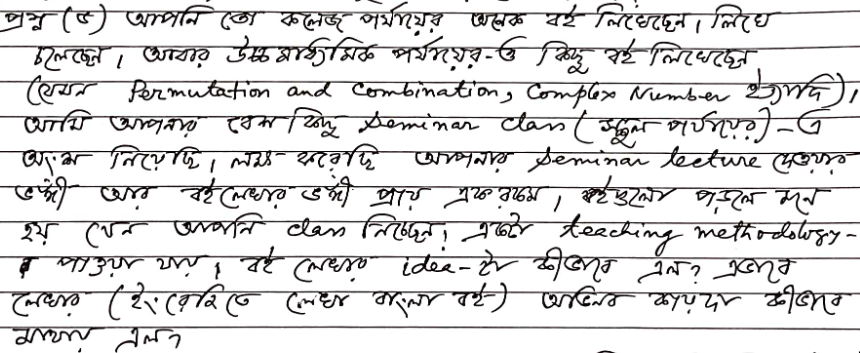 প্রশ্ন (৫) আপনি তো কলেজ পর্যায়ের অনেক বই লিখেছেন, লিখে
চলেছেন, আবার উচ্চমাধ্যমিক পর্যায়ের-ও কিছু বই লিখেছেন
(যেমন Permutation and Combination, Complex Number ইত্যাদি),
আমি আপনার বেশ কিছু Seminar class (স্কুল পর্যায়ের)-এ
অংশ নিয়েছি, লক্ষ করেছি আপনার Seminar lecture দেওয়ার
ভঙ্গী আর বই লেখার ভঙ্গী প্রায় একরকম, বইগুলো পড়লে মনে
হয় যেন আপনি class নিচ্ছেন, একটা teaching methodology-
র পাওয়া যায়, বই লেখার idea-টা কীভাবে এল? এভাবে
লেখার (ইংরেজিতে লেখা বাংলা বই) অভিনব কায়দা কীভাবে
মাথায় এল?